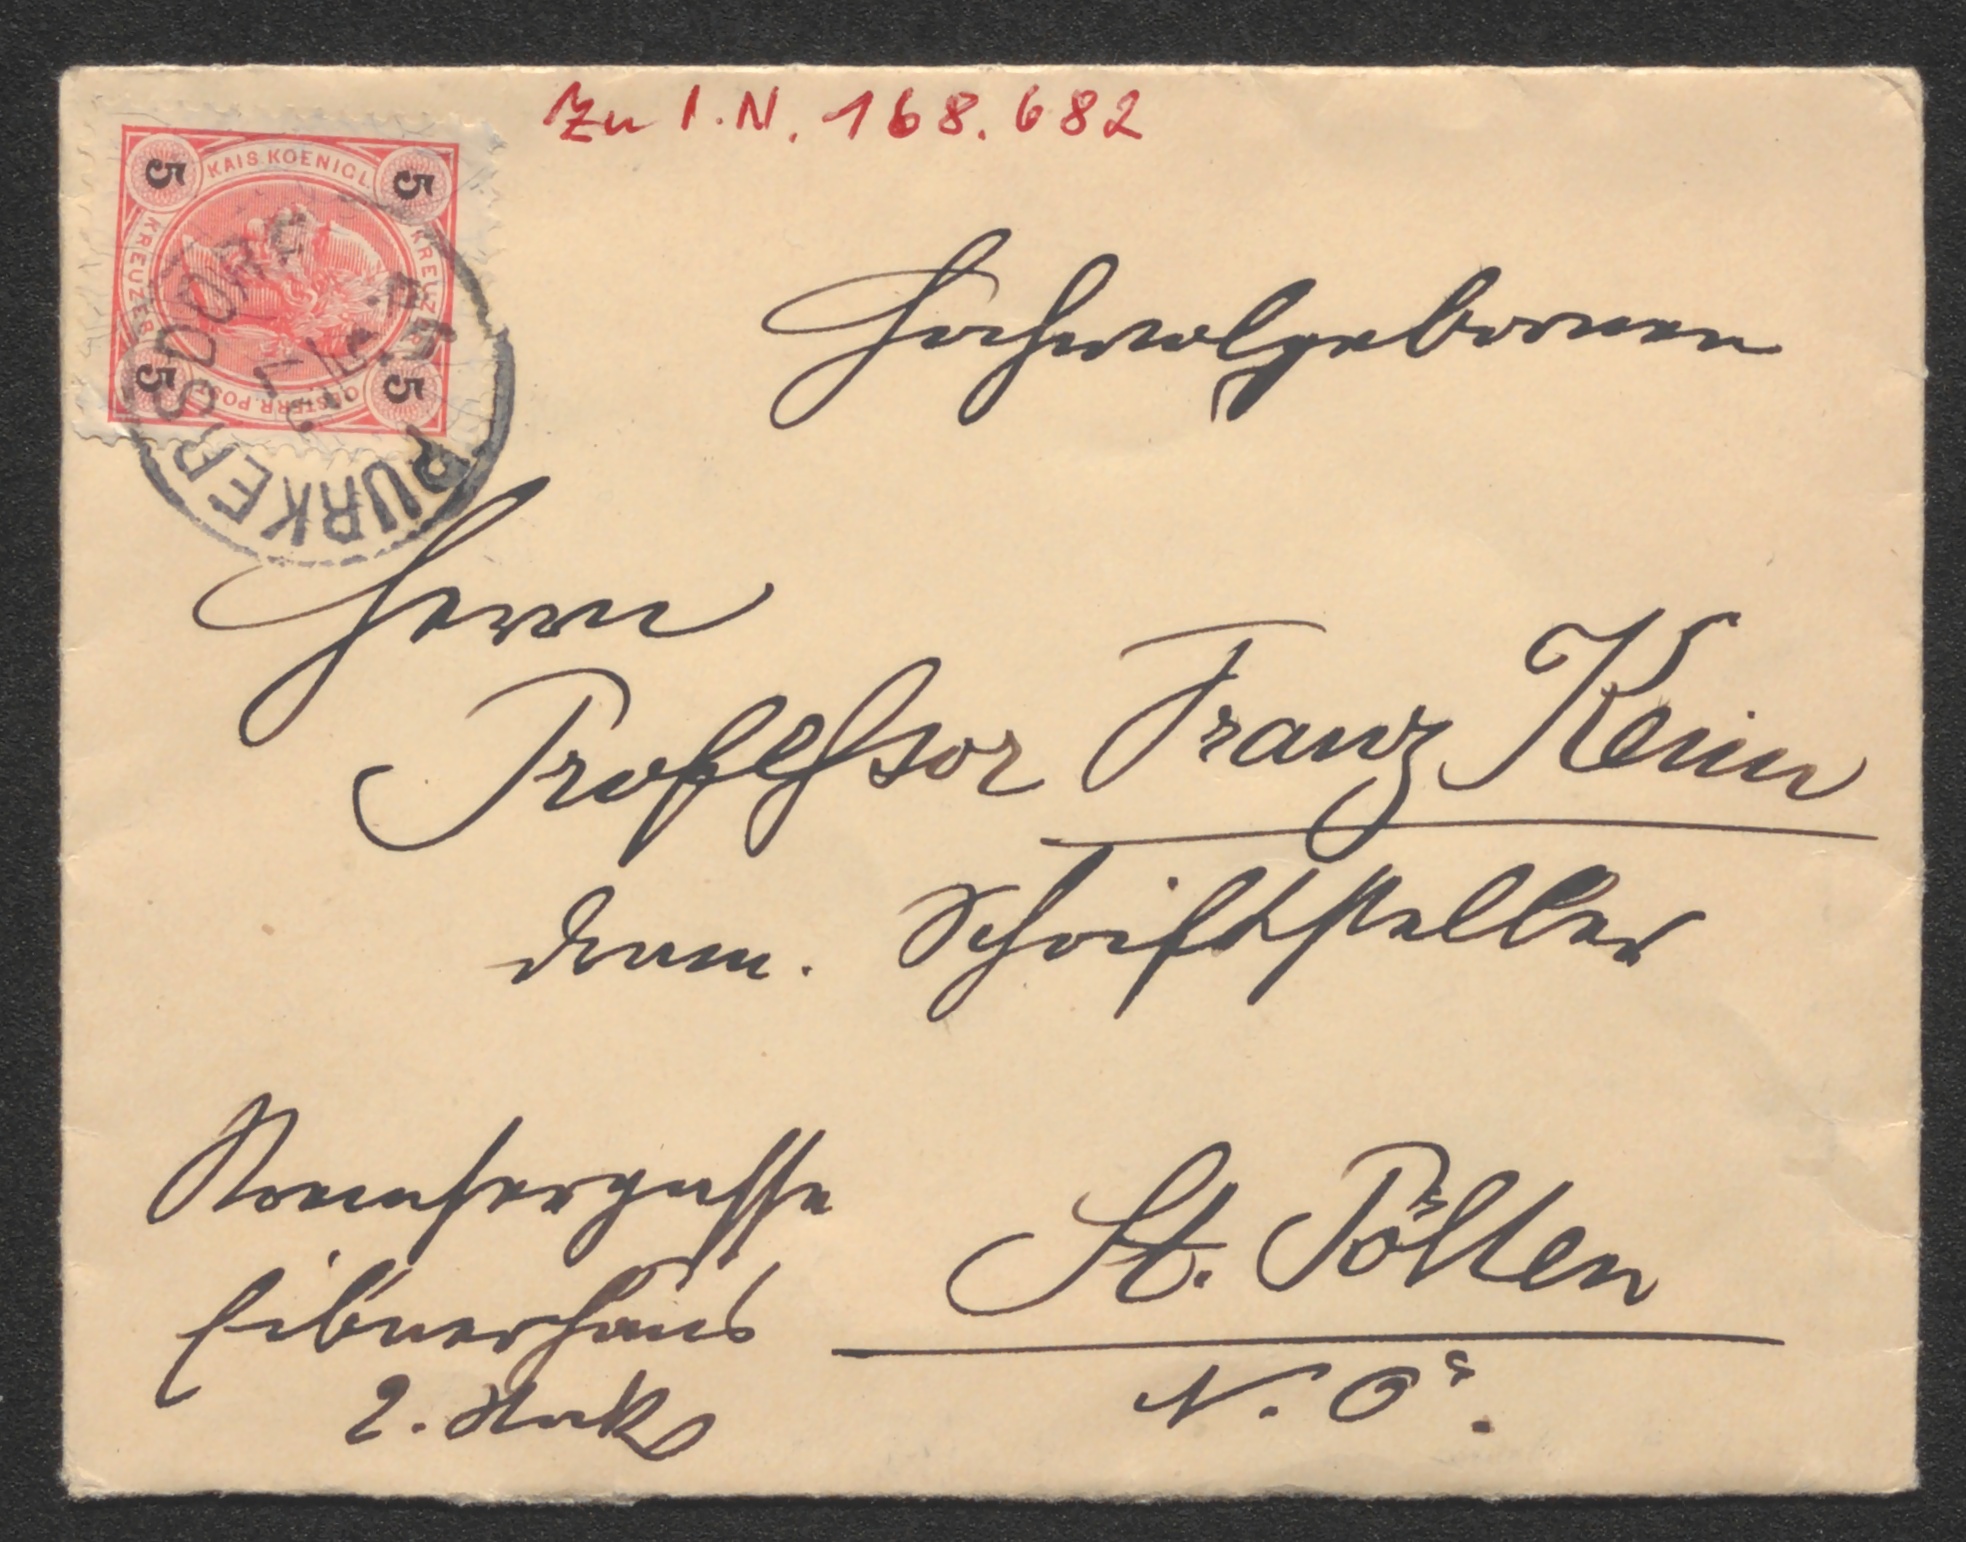 Zu I.N. 168.682
KAIS. KOENIGL.
5 5
KREUZER KREUZER
5 5
OESTERR. POST
PURKERSDORF
Hochwolgebornen
Herrn
Professor Franz Keim
dram. Schriftsteller
Kremsergasse
Eibnerhaus
2. Stock
St. Pölten
N. Ö.